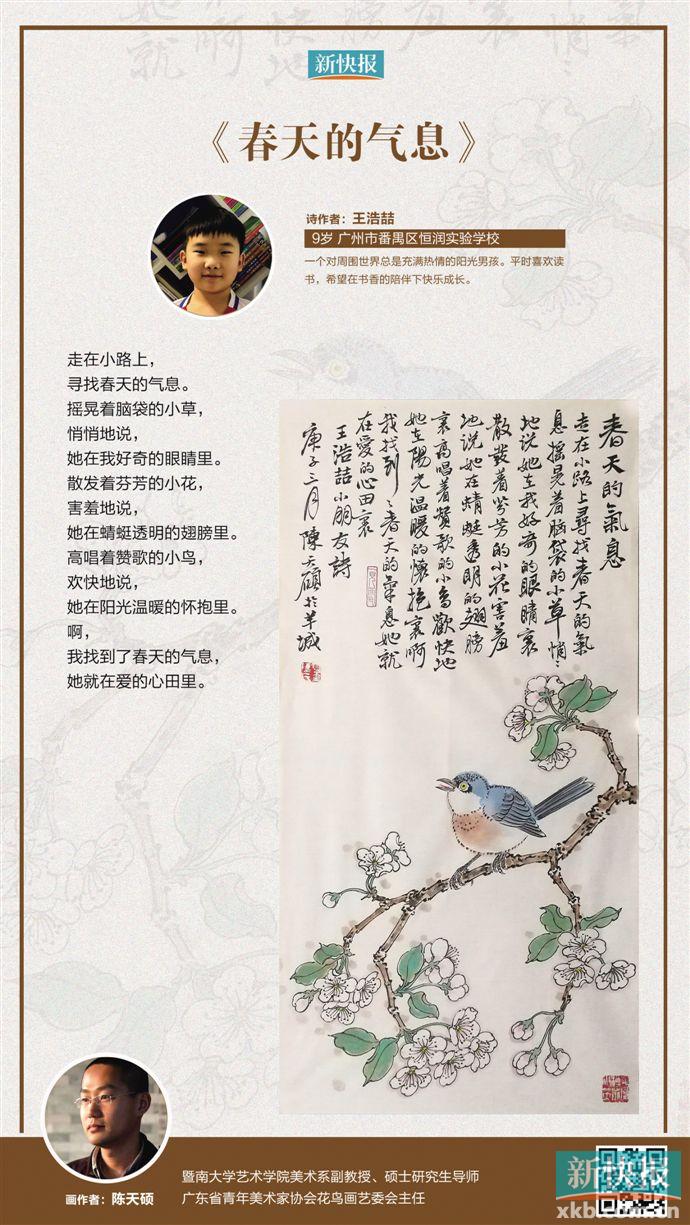 新快报
《春天的气息》
诗作者：王浩喆
9岁 广州市番禺区恒润实验学校
一个对周围世界总是充满热情的阳光男孩。平时喜欢读
书，希望在书香的陪伴下快乐成长。
走在小路上，
寻找春天的气息。
摇晃着脑袋的小草，
悄悄地说，
她在我好奇的眼睛里。
散发着芬芳的小花，
害羞地说，
她在蜻蜓透明的翅膀里。
高唱着赞歌的小鸟，
欢快地说，
她在阳光温暖的怀抱里。
啊，
我找到了春天的气息，
她就在爱的心田里。
春天的氣息
走在小路上尋找春天的氣
息摇晃着脑袋的小草悄〻
地说她在我好奇的眼睛裏
散發着芬芳的小花害羞
地说她在蜻蜓透明的翅膀
裏高唱着赞歌的小鸟歡快地
她在陽光温暖的懷抱裏啊
我找到了春天的氣息她就
在愛的心田裏
王浩喆小朋友詩
庚子三月陳天碩於羊城
画作者：陈天硕
暨南大学艺术学院美术系副教授、硕士研究生导师
广东省青年美术家协会花鸟画艺委会主任
新快报